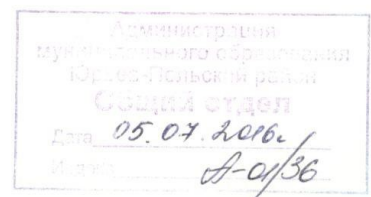 Администрация
муниципального образования
Юрьев-Польский район
Общий отдел
Дата 05.07.2016г
Индекс А-01/36